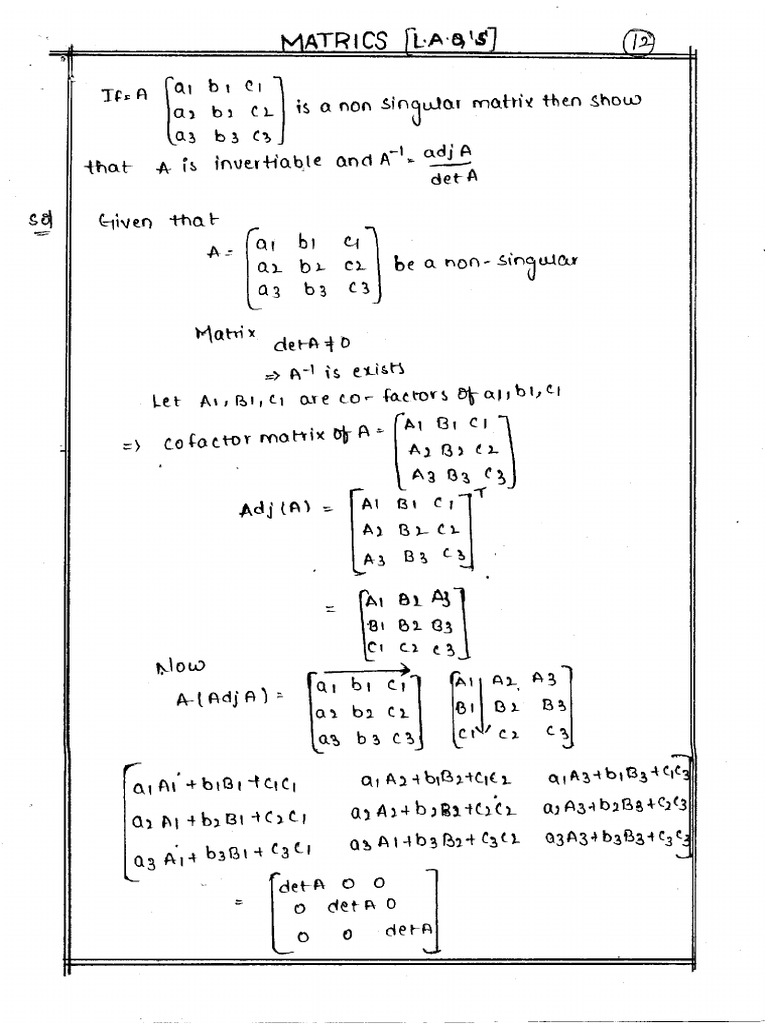 MATRICS [L.A.Q'S] 12
If = A [a1 b1 c1
a2 b2 c2
a3 b3 c3] is a non singular matrix then show
that A is invertiable and A⁻¹ = adj A / det A
Sol Given that
A = [a1 b1 c1
a2 b2 c2
a3 b3 c3] be a non-singular
Matrix det A ≠ 0
⇒ A⁻¹ is exists
Let A1, B1, C1 are co-factors of a1, b1, c1
⇒ cofactor matrix of A = [A1 B1 C1
A2 B2 C2
A3 B3 C3]
Adj (A) = [A1 B1 C1
A2 B2 C2
A3 B3 C3]ᵀ
= [A1 B2 A3
B1 B2 B3
C1 C2 C3]
Now
A (Adj A) = [a1 b1 c1 [A1 A2 A3
a2 b2 c2 B1 B2 B3
a3 b3 c3] C1 C2 C3]
[a1A1 + b1B1 + c1C1 a1A2 + b1B2 + c1C2 a1A3 + b1B3 + c1C3
a2A1 + b2B1 + c2C1 a2A2 + b2B2 + c2C2 a2A3 + b2B3 + c2C3
a3A1 + b3B1 + c3C1 a3A1 + b3B2 + c3C2 a3A3 + b3B3 + c3C3]
= [det A 0 0
0 det A 0
0 0 det A]